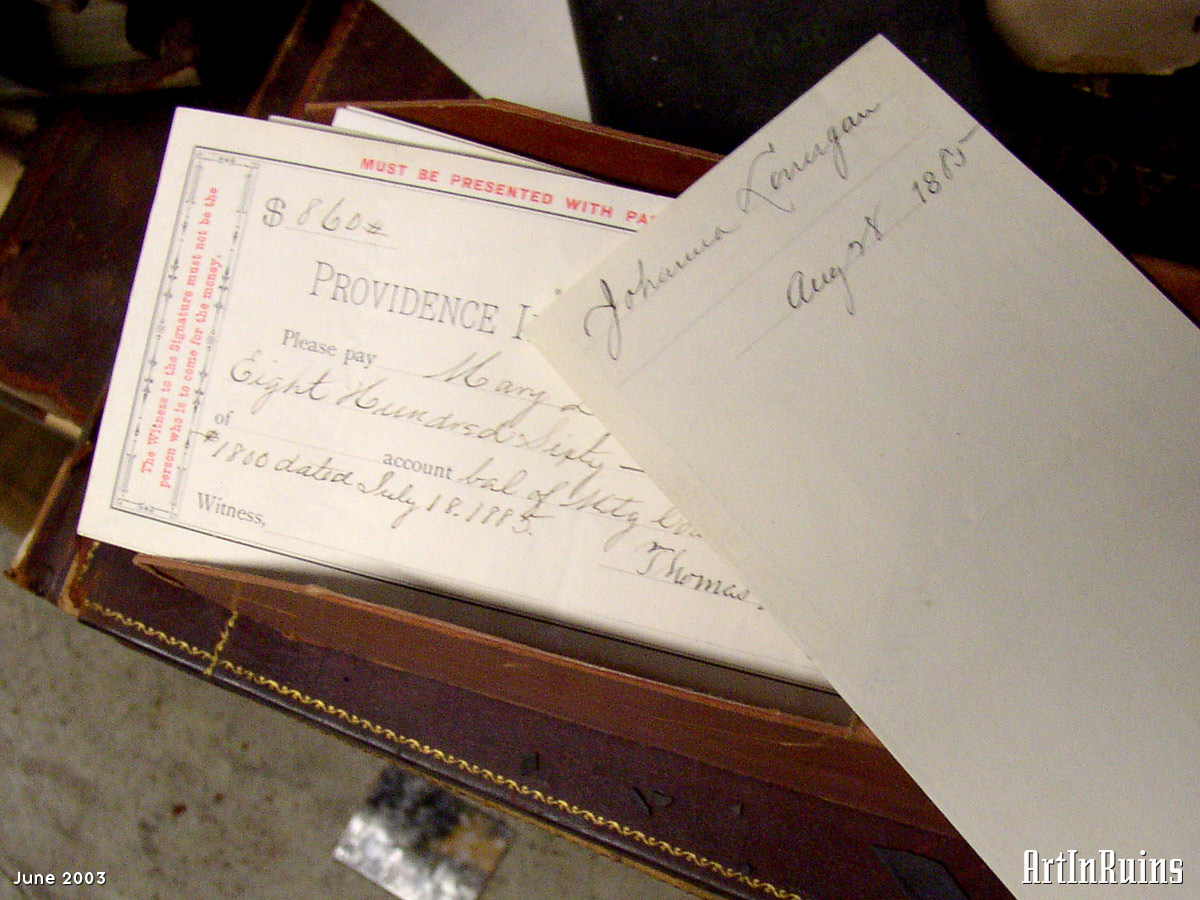 MUST BE PRESENTED WITH PA
The Witness to the Signature must not be the
person who is to come for the money.
$ 860
PROVIDENCE I
Please pay Mary
Eight Hundred Sixty —
of
account bal of Mtg
$1800 dated July 18. 1885.
Witness,
Thomas
Johanna Lonergan
Aug 28 1885
June 2003
ArtInRuins